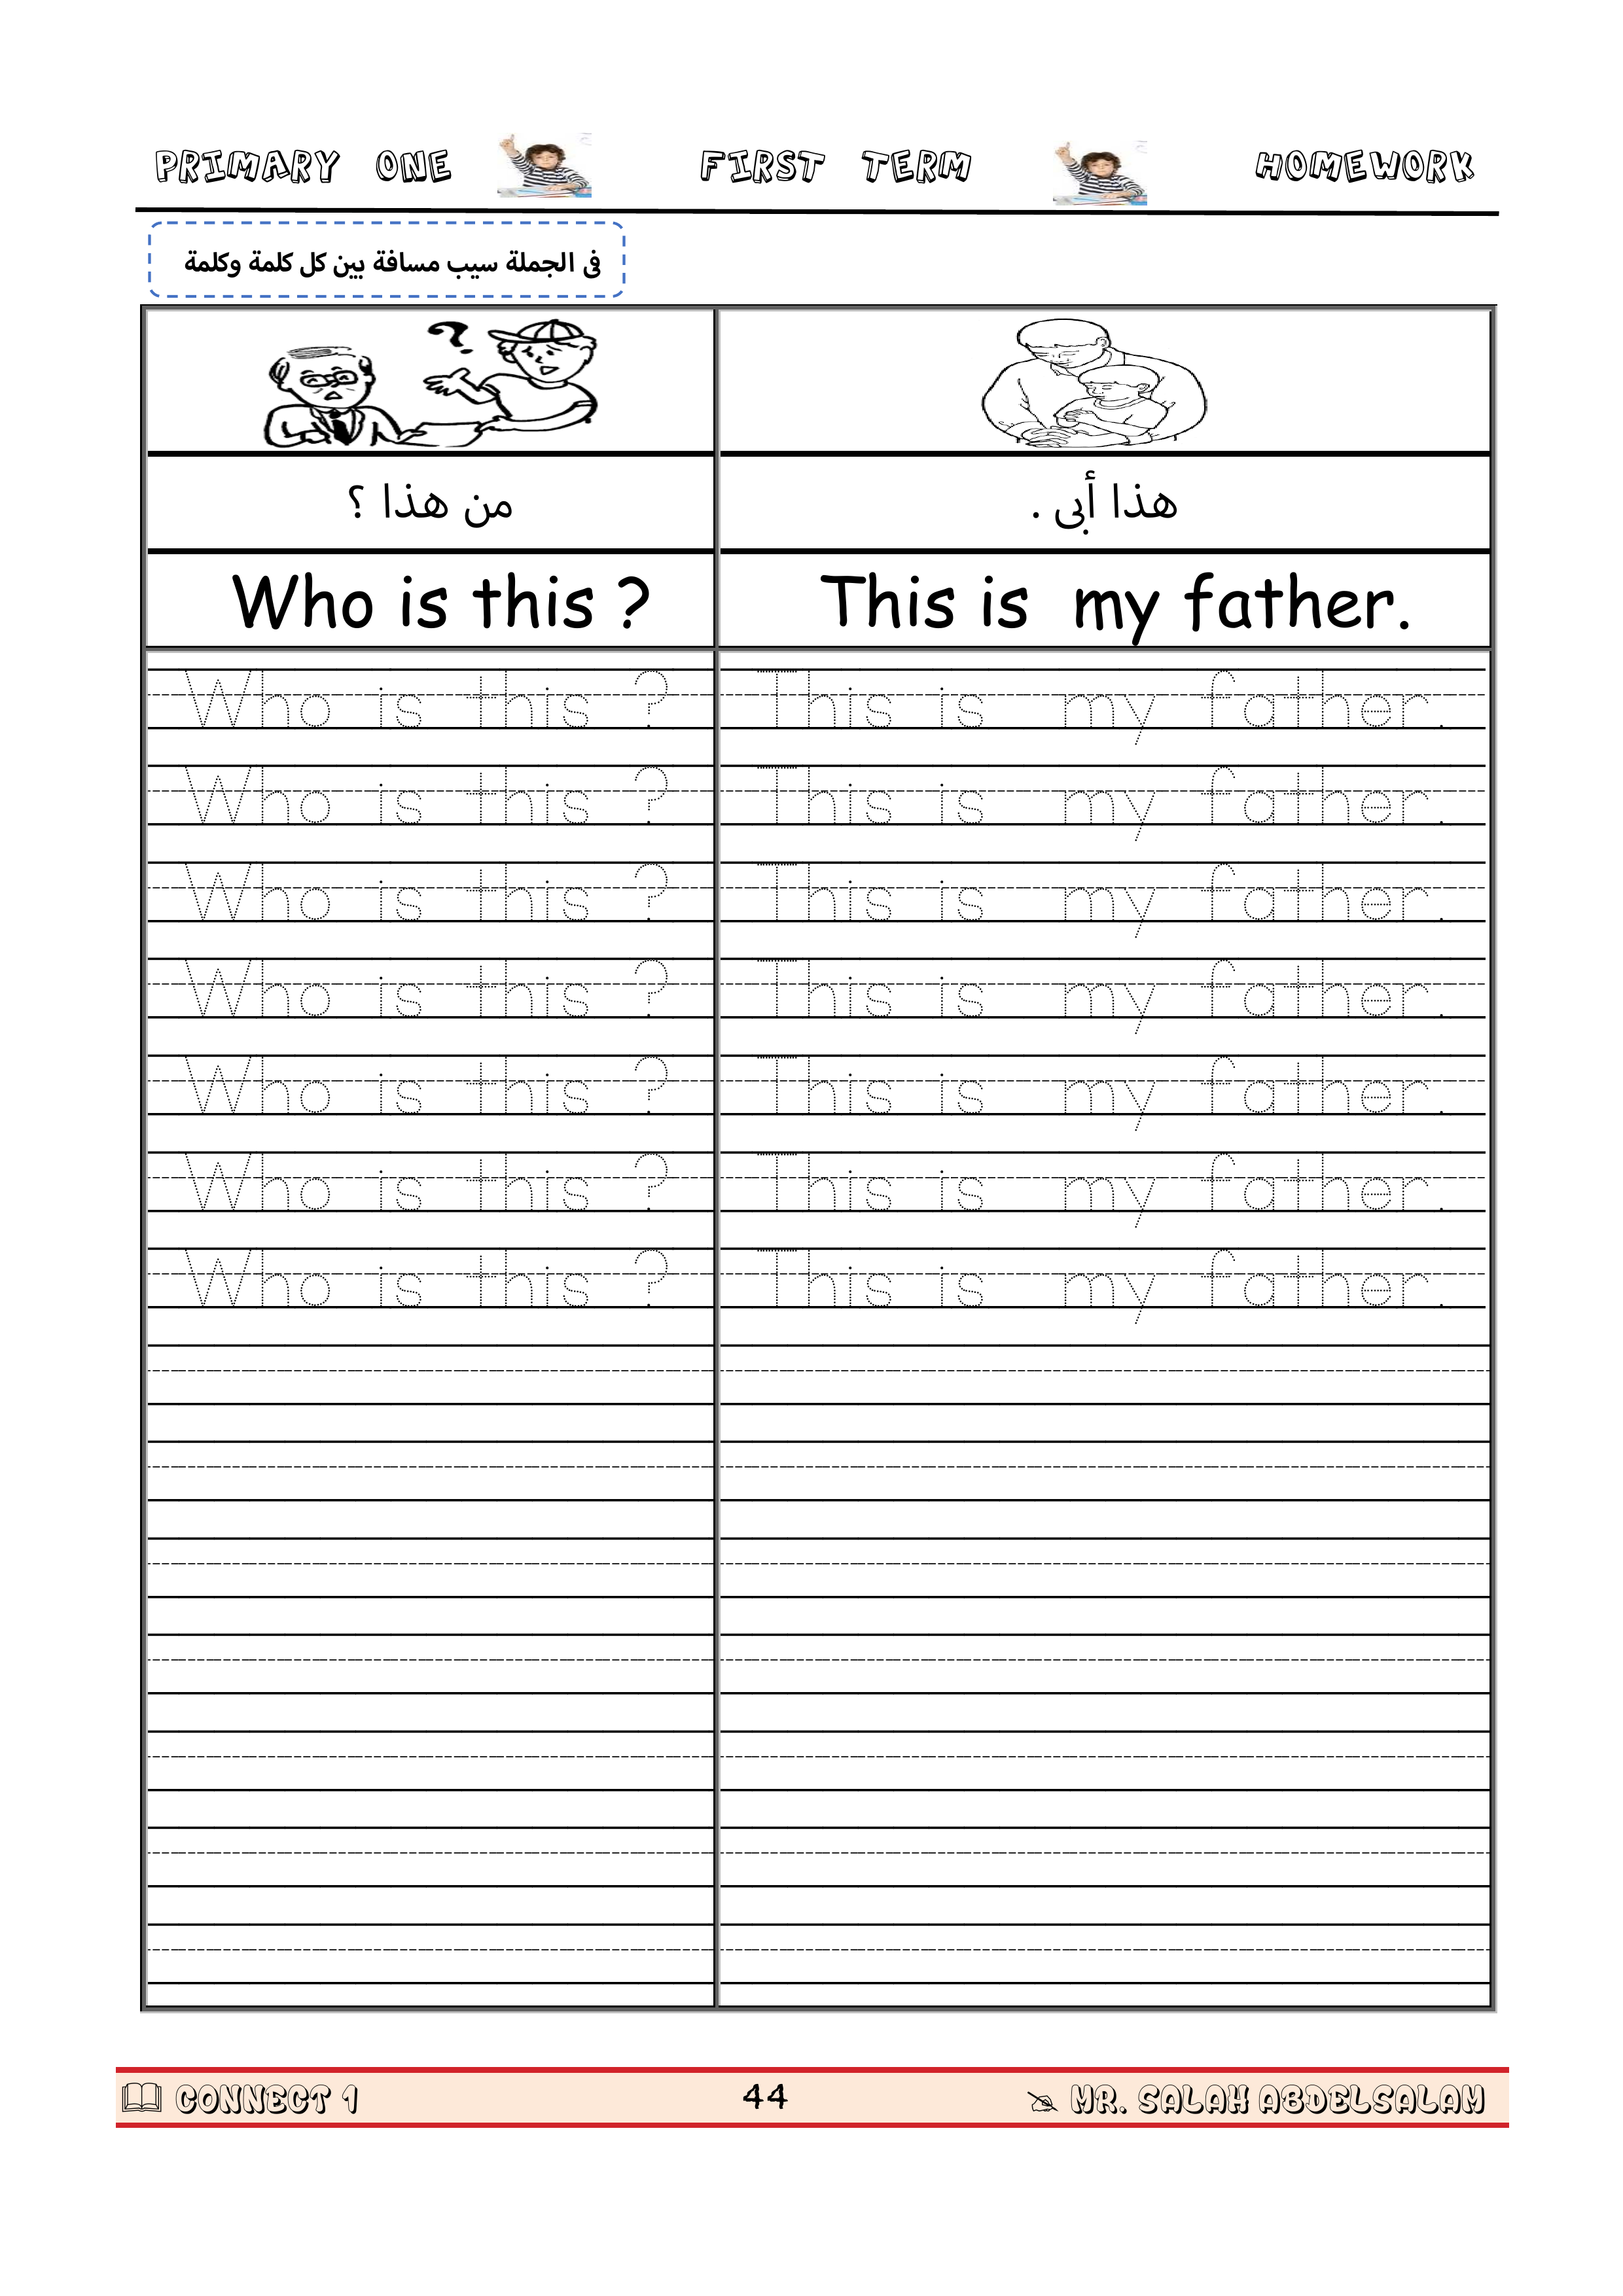 PRIMARY ONE FIRST TERM HOMEWORK
فى الجملة سيب مسافة بين كل كلمة وكلمة
من هذا ؟ هذا أبى .
Who is this ? This is my father.
Who is this ? This is my father.
Who is this ? This is my father.
Who is this ? This is my father.
Who is this ? This is my father.
Who is this ? This is my father.
Who is this ? This is my father.
Who is this ? This is my father.
CONNECT 1 44 MR. SALAH ABDELSALAM